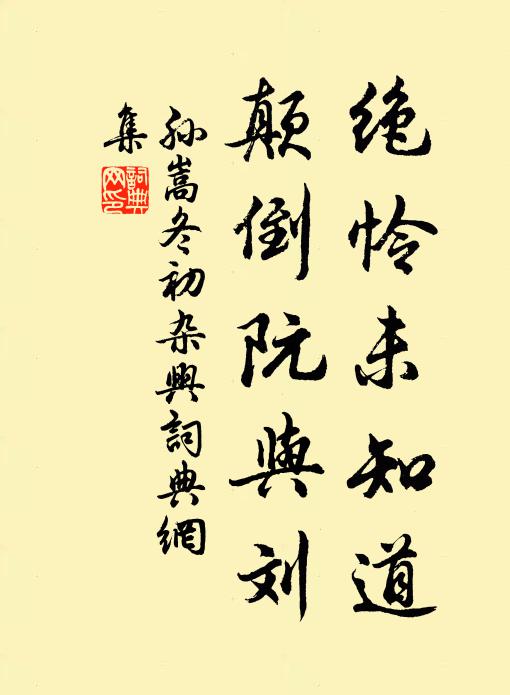 绝怜未知道
颠倒阮与刘
孙嵩冬初杂兴词典網
集
詞典
网印